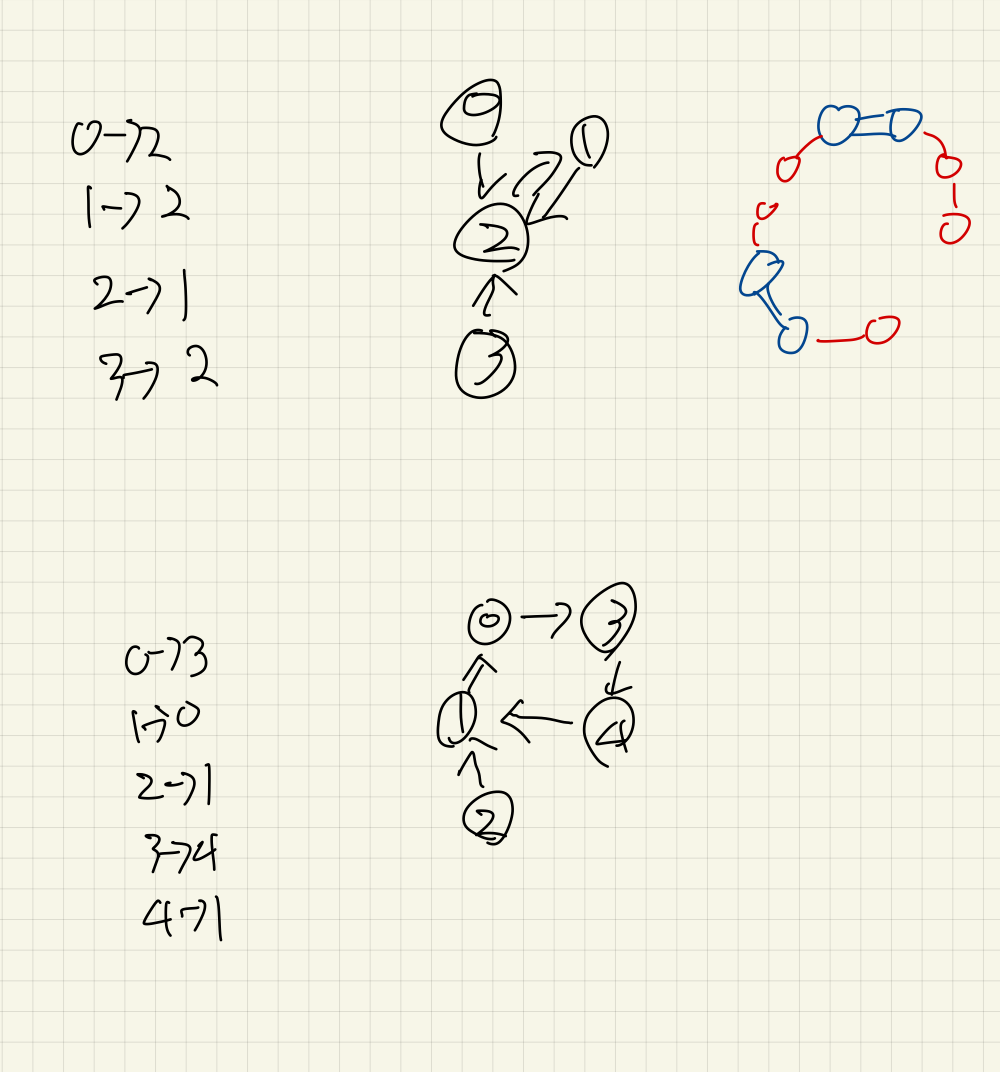 0→2
1→2
2→1
3→2
0
1
2
3
0→3
1→0
2→1
3→4
4→1
0 → 3
1 ← 4
2